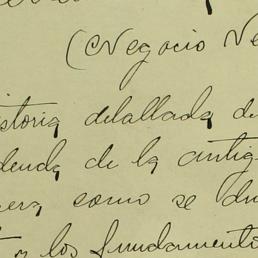 (Negocio Ne
istoria detallada de
deuda de la antig
como se
los fundamento